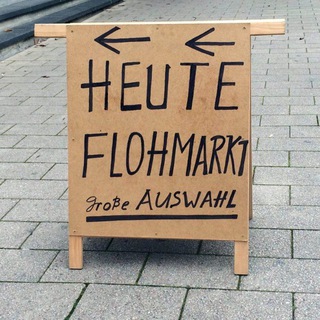 HEUTE
FLOHMARKT
große AUSWAHL